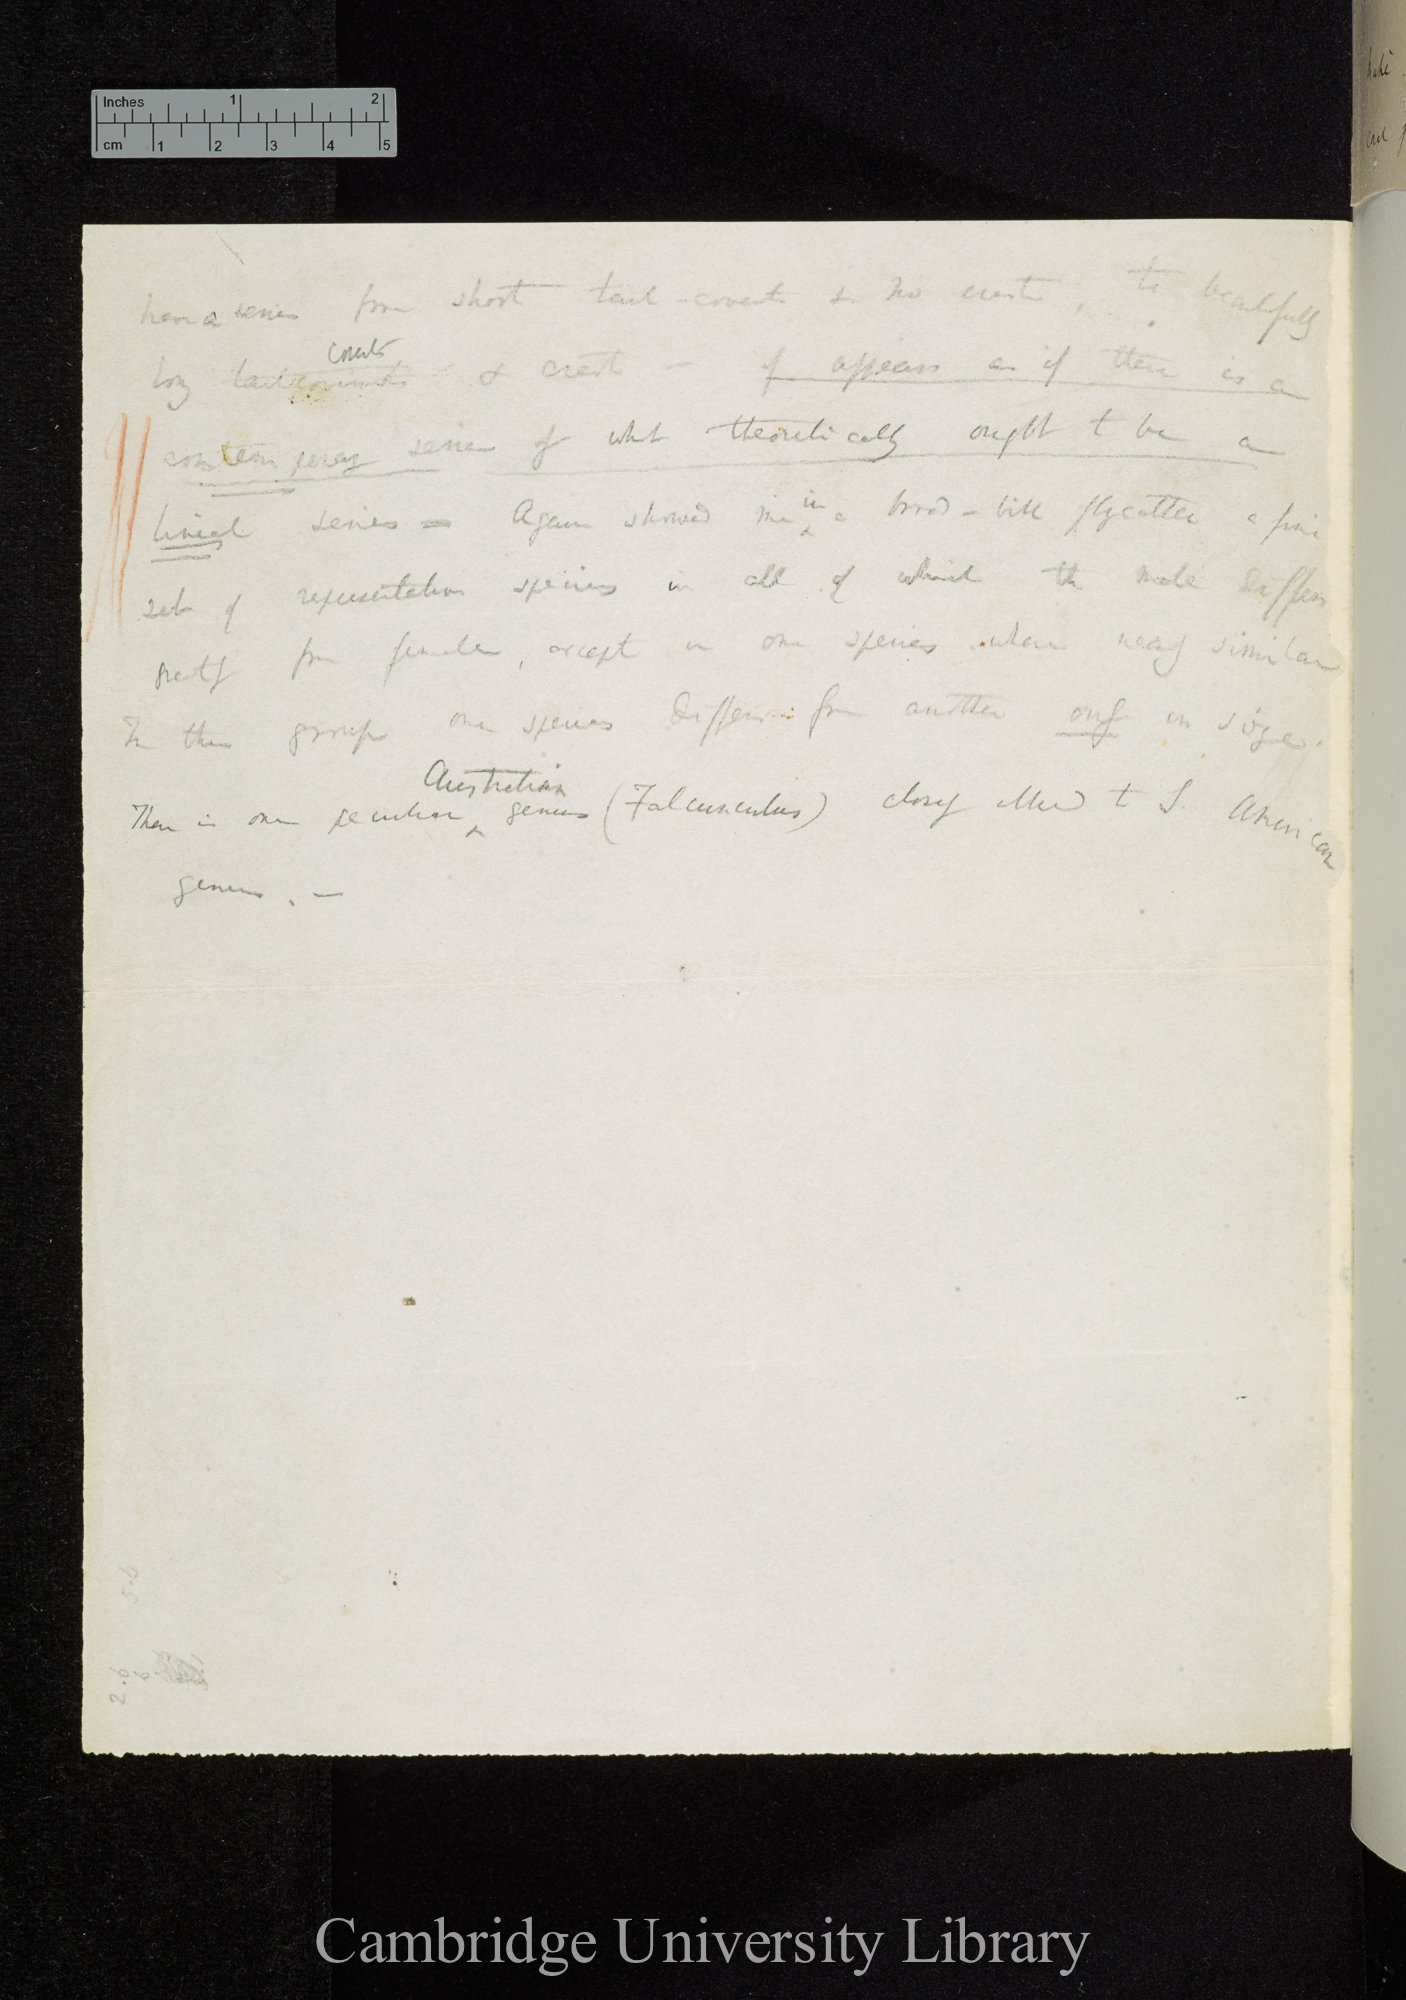 Inches 1 2
cm 1 2 3 4 5
have a series from short tail-coverts & no crests, to beautifully
coverts
long tail coverts & crests — it appears as if there is a
contemporary series of what theoretically ought to be a
lineal series = Again showed me in a broad-bill flycatcher a fine
set of representative species in all of which the male differs
greatly from females, except in one species where nearly similar
In this group one species differs from another only in size.
Australian
There is one peculiar ^ genus (Falcunculus) closely allied to S. American
genus. —
5.6
2.6
Cambridge University Library